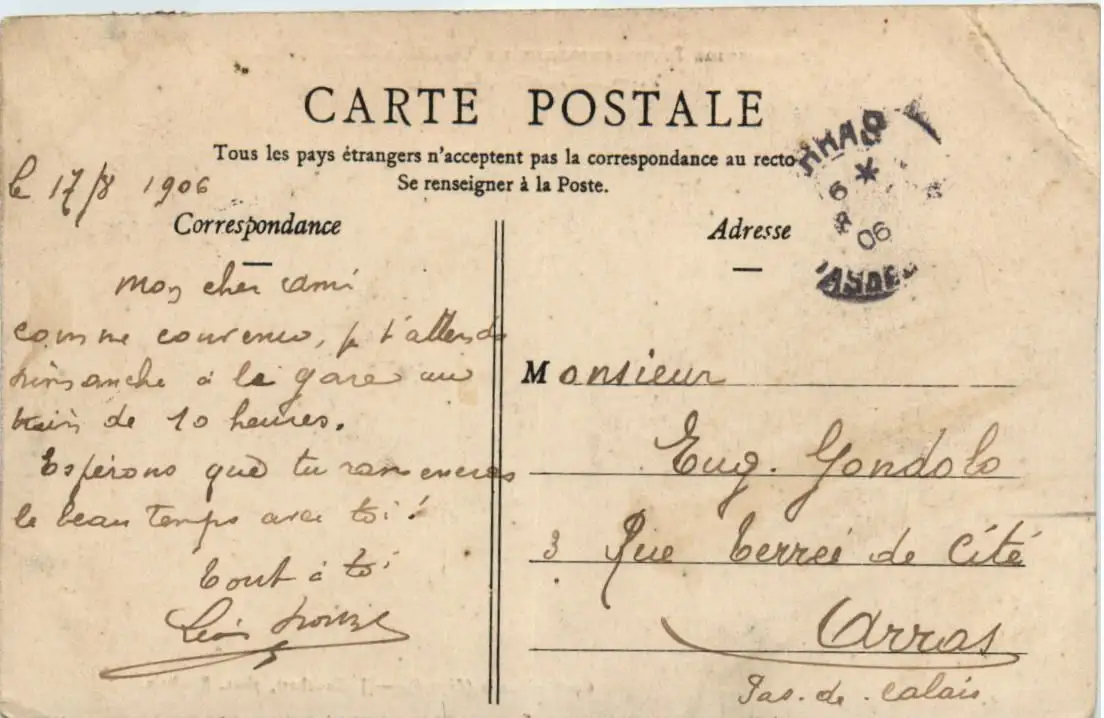 CARTE POSTALE
Tous les pays étrangers n'acceptent pas la correspondance au recto
Se renseigner à la Poste.
le 17/8 1906
Correspondance
Mon cher ami
comme convenu, je t'attends
dimanche à la gare au
train de 10 heures.
Espérons que tu ramèneras
le beau temps avec toi!
Tout à toi
Léon
Adresse
Monsieur
Eug. Gondolo
3 Rue Terrée de Cité
Arras
Pas-de-Calais
6
8
06